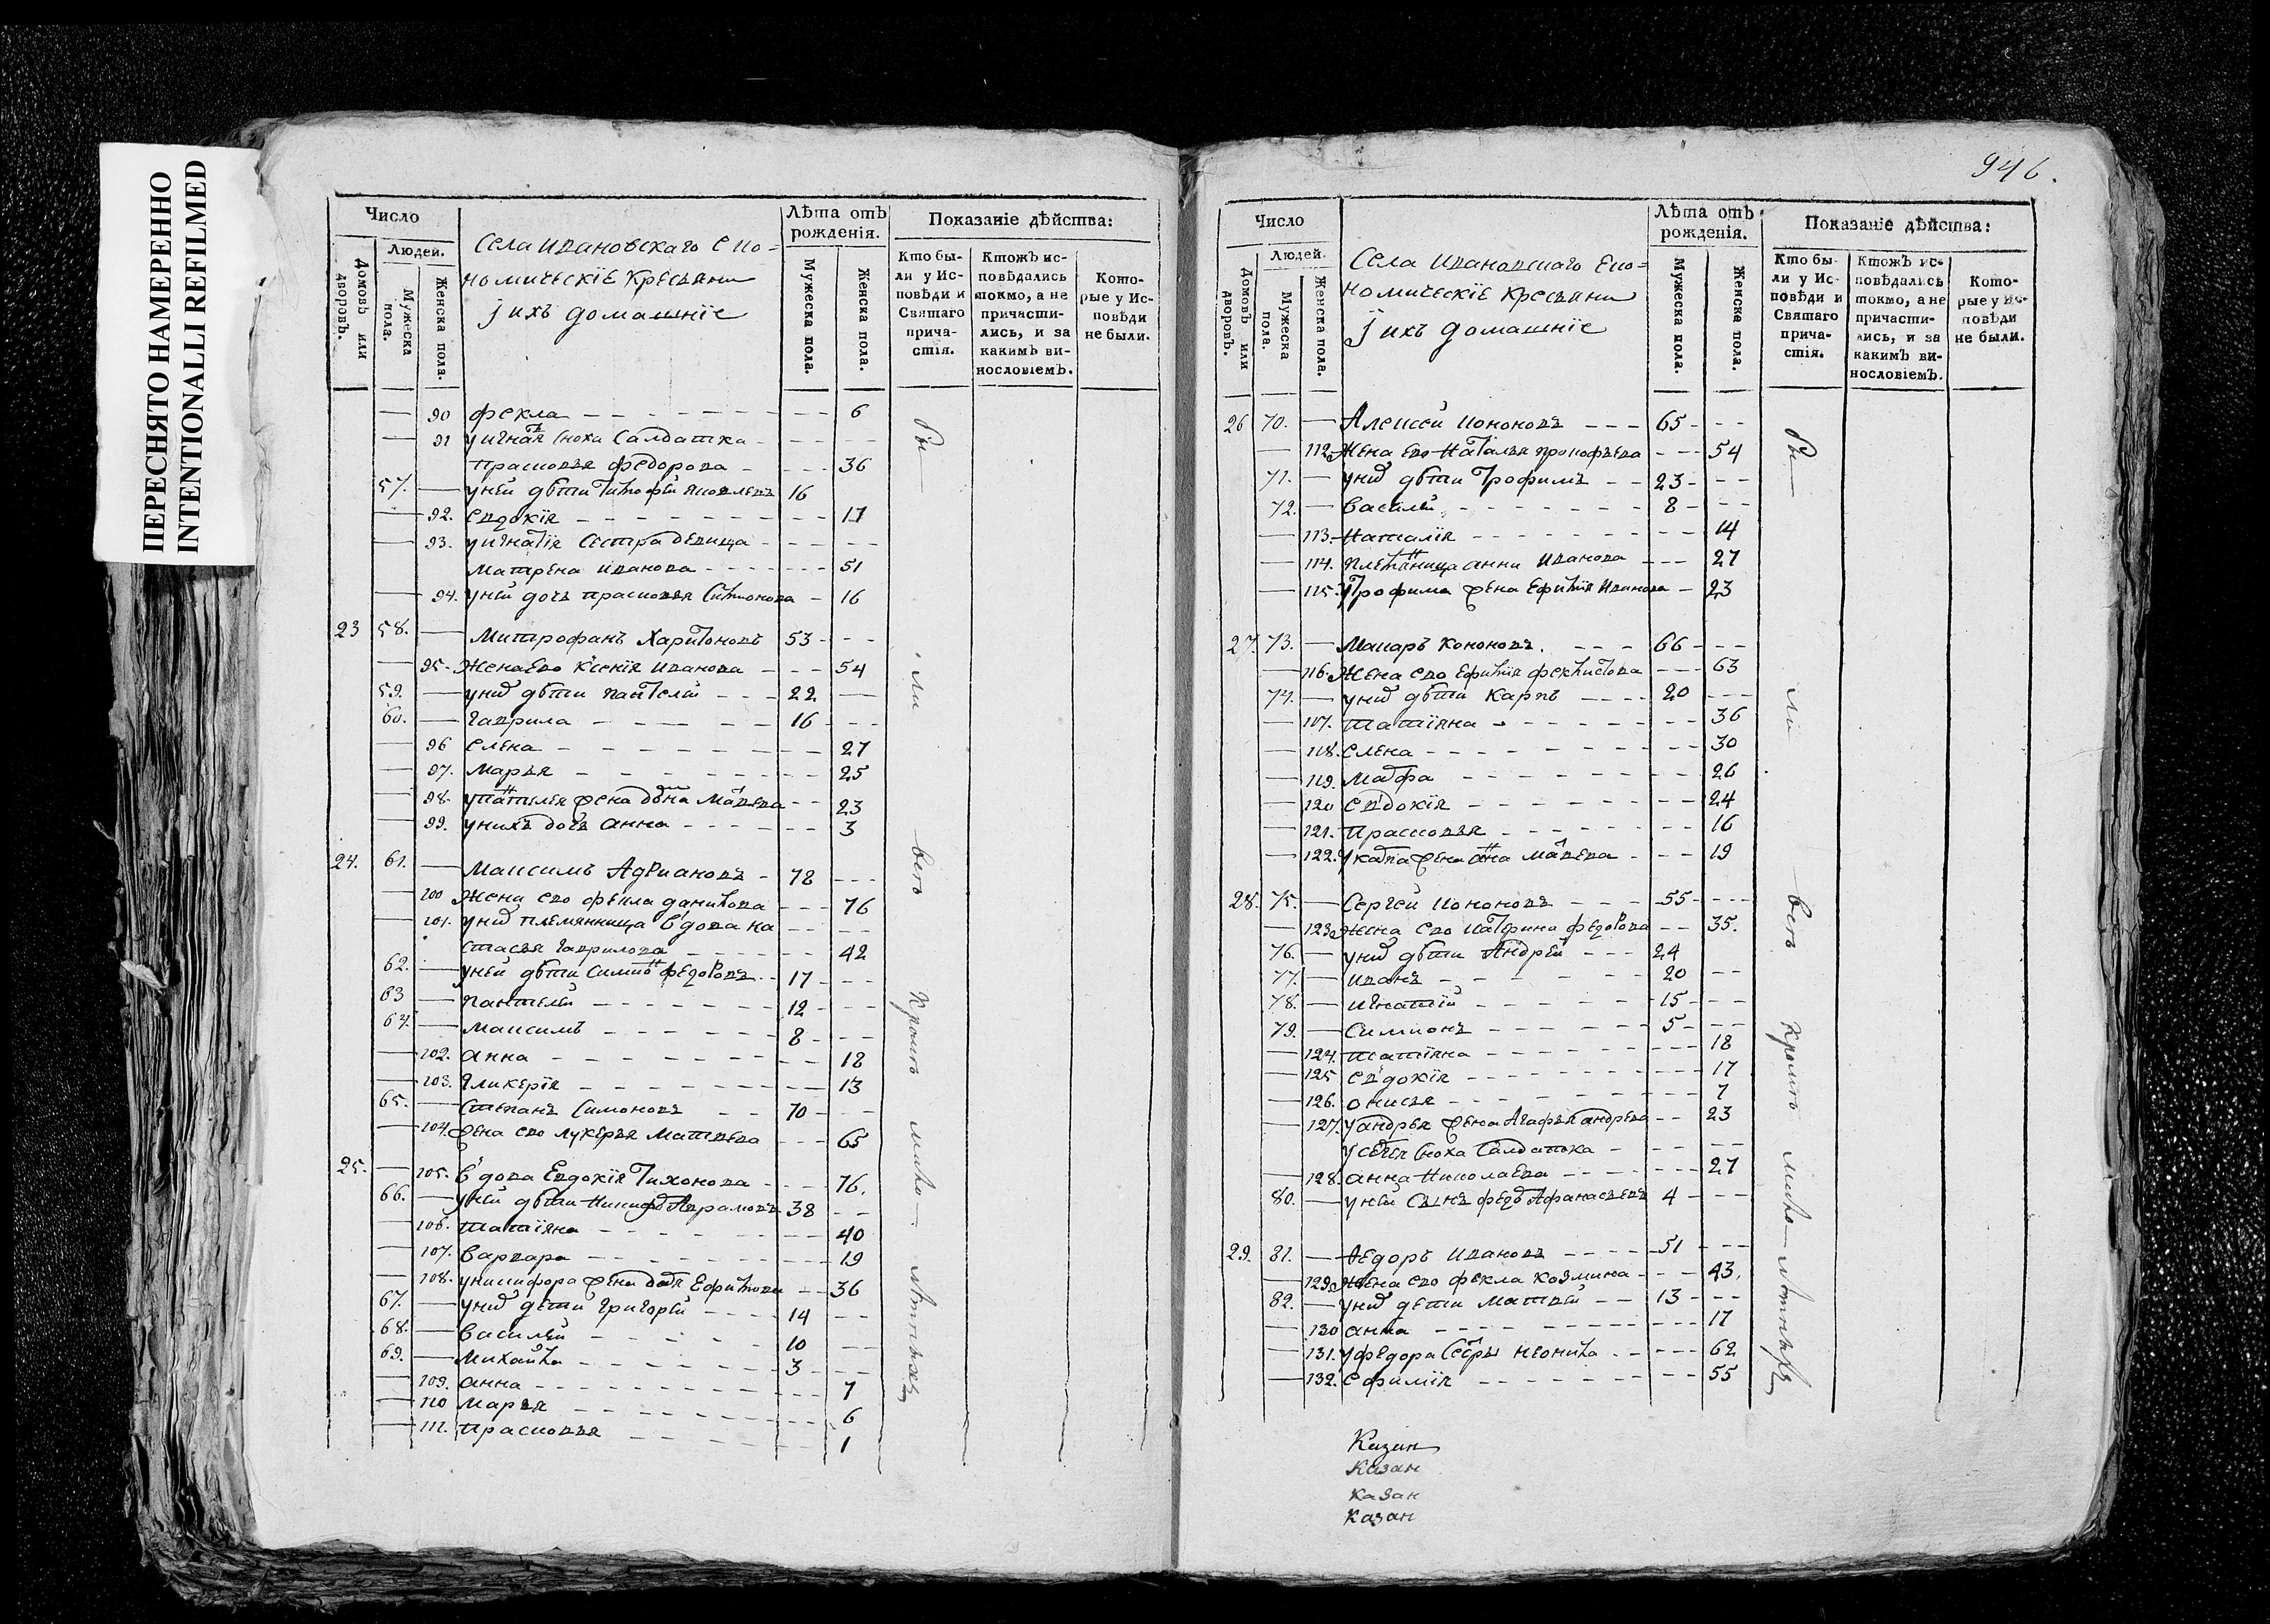 ПЕРЕСНЯТО НАМЕРЕННО
INTENTIONALLI REFILMED
Число
Людей.
Домовъ или дворовъ.
Мужеска пола.
Женска пола.
Села Ивановскаго Еко-
номическіе крестьяни
јихъ домашніе
Лѣта отъ рожденія.
Мужеска пола.
Женска пола.
Показаніе дѣйства:
Кто бы-
ли у Ис-
повѣди и
Святаго
прича-
стія.
Ктожъ ис-
повѣдались
токмо, а не
причасти-
лись, и за
какимъ ви-
нословіемъ.
Кото-
рые у Ис-
повѣди
не были.
90 фекла 6
91 Сноха Салдатка
прасковья федорова 36
57. уней дѣти Тимофей Яковлевъ 16
92. Евдокія 17
93. уигнатія Сестра девица
Матрена иванова 51
94. уней дочь прасковья Симионова 16
23 58. Митрофанъ Харитоновъ 53
95. Жена Ево Ксенія иванова 54
59. унихъ дѣти пантелей 22
60. гаврила 16
96 елена 27
97. марья 25
98. 23
99. унихъ дочь анна 3
24. 61. Максимъ Адриановъ 78
100 жена ево фекла данилова 76
101. унихъ племянница вдова На
стасья гаврилова 42
62. уней дѣти Симион федоровъ 17
63 пантелей 12
64. максимъ 8
102. анна 18
103. гликерія 13
65. Степанъ Симоновъ 70
104. жена ево лукерья матвева 65
25. 105. вдова Евдокія Тихонова 76.
66. уней дѣти Никифор Аврамовъ 38
106. татіяна 40
107. варвара 19
108. уникифора жена 36
67. унихъ дети григорей 14
68. василей 10
69. михайла 3
109. анна 7
110 марья 6
111. прасковья 1
Бы
ли
всѣ
кромѣ
мало-
лѣтныхъ
946.
Число
Людей.
Домовъ или дворовъ.
Мужеска пола.
Женска пола.
Села Ивановскаго Еко-
номическіе крестьяни
јихъ домашніе
Лѣта отъ рожденія.
Мужеска пола.
Женска пола.
Показаніе дѣйства:
Кто бы-
ли у Ис-
повѣди и
Святаго
прича-
стія.
Ктожъ ис-
повѣдались
токмо, а не
причасти-
лись, и за
какимъ ви-
нословіемъ.
Кото-
рые у Ис-
повѣди
не были.
26 70. Алексей Кононовъ 65
112. Жена ево Наталья прокофьева 54
71. унихъ дѣти Трофимъ 23
72. василей 8
113. Наталія 14
114. племянница анна Иванова 27
115. утрофима жена Ефимия Иванова 23
27. 73. Макаръ Кононовъ. 66
116. Жена ево Ефимия феклистова 63
74. унихъ дѣти Карпъ 20
107. татіяна 36
118. елена 30
119. марфа 26
120 евдокія 24
121. прасковья 16
122. укарпа жена анна 19
28. 75. Сергей Кононовъ 55
123. жена ево катерина федорова 35.
76. унихъ дѣти Андрей 24
77. иванъ 20
78. игнатій 15
79. Симионъ 5
124. татіяна 18
125 евдокія 17
126. онисья 7
127. уандрея жена Агафья андрева 23
усергея сноха Салдатка
128. анна Николаева 27
80. уней Сынъ федор Афанасьевъ 4
29. 81. Федоръ Ивановъ 51
129. жена ево фекла козмина 43.
82. унихъ дети Матвей 13
130 анна 17
131. уфедора сестры неонила 62
132. Ефимія 55
Бы
ли
всѣ
кромѣ
мало-
лѣтныхъ
Казан
Казан
Казан
Казан